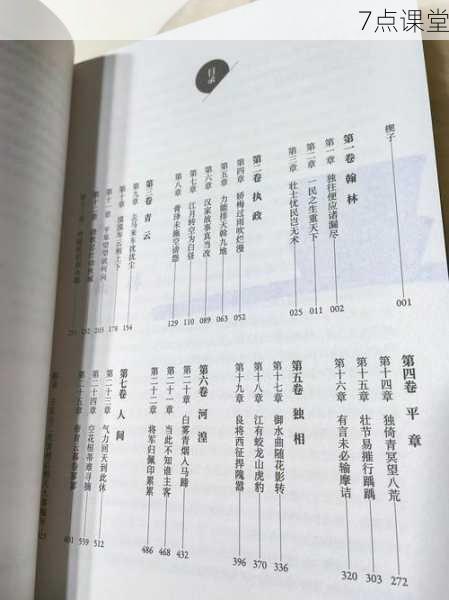 7点课堂
目录
楔子
001
第一卷 翰林
第一章 独往便应诸漏尽
002
第二章 一民之生重天下
011
第三章 壮士忧民岂无术
025
第二卷 执政
第四章 娇梅过雨吹烂漫
052
第五章 力能排天斡九地
063
第六章 汉家故事真当改
089
第七章 江月转空为白昼
110
第八章 膏泽未施空谤怨
129
第三卷 青云
第九章 去马来车扰扰尘
154
第十章
178
第十一章 平皋望望欲何向
203
第十二章
252
第四卷 平章
第十四章 独倚青冥望八荒
272
第十五章 壮节易摧行踽踽
303
第十六章 有言未必输摩诘
320
第五卷 独相
第十七章 御水曲随花影转
336
第十八章 江有蛟龙山虎豹
370
第十九章 良将西征捍隗嚣
396
第六卷 河湟
第二十章 白雾青烟入马蹄
432
第二十一章 当此不知谁主客
468
第二十二章 将军归佩印累累
486
第七卷 人间
第二十三章 气力回天到此休
512
第二十四章 空花根蒂难寻摘
539
第二十五章
601